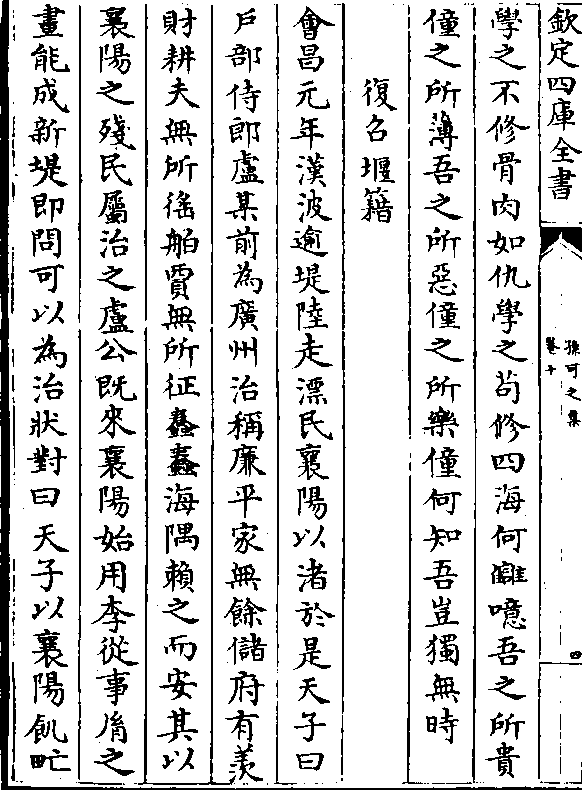 欽定四庫全書
孫可之集
卷十
四
學之不修骨肉如仇學之苟修四海何讎噫吾之所貴
僮之所薄吾之所惡僮之所樂僮何知吾豈獨無時
復召堰籍
會昌元年漢波逾堤陸走漂民襄陽以渚於是天子曰
戶部侍郎盧某前為廣州治稱廉平家無餘儲府有羡
財耕夫無所徭舶賈無所征蠢蠢海隅賴之而安其以
襄陽之殘民屬治之盧公既來襄陽始用李從事胤之
畫能成新堤即問可以為治狀對曰天子以襄陽飢甿